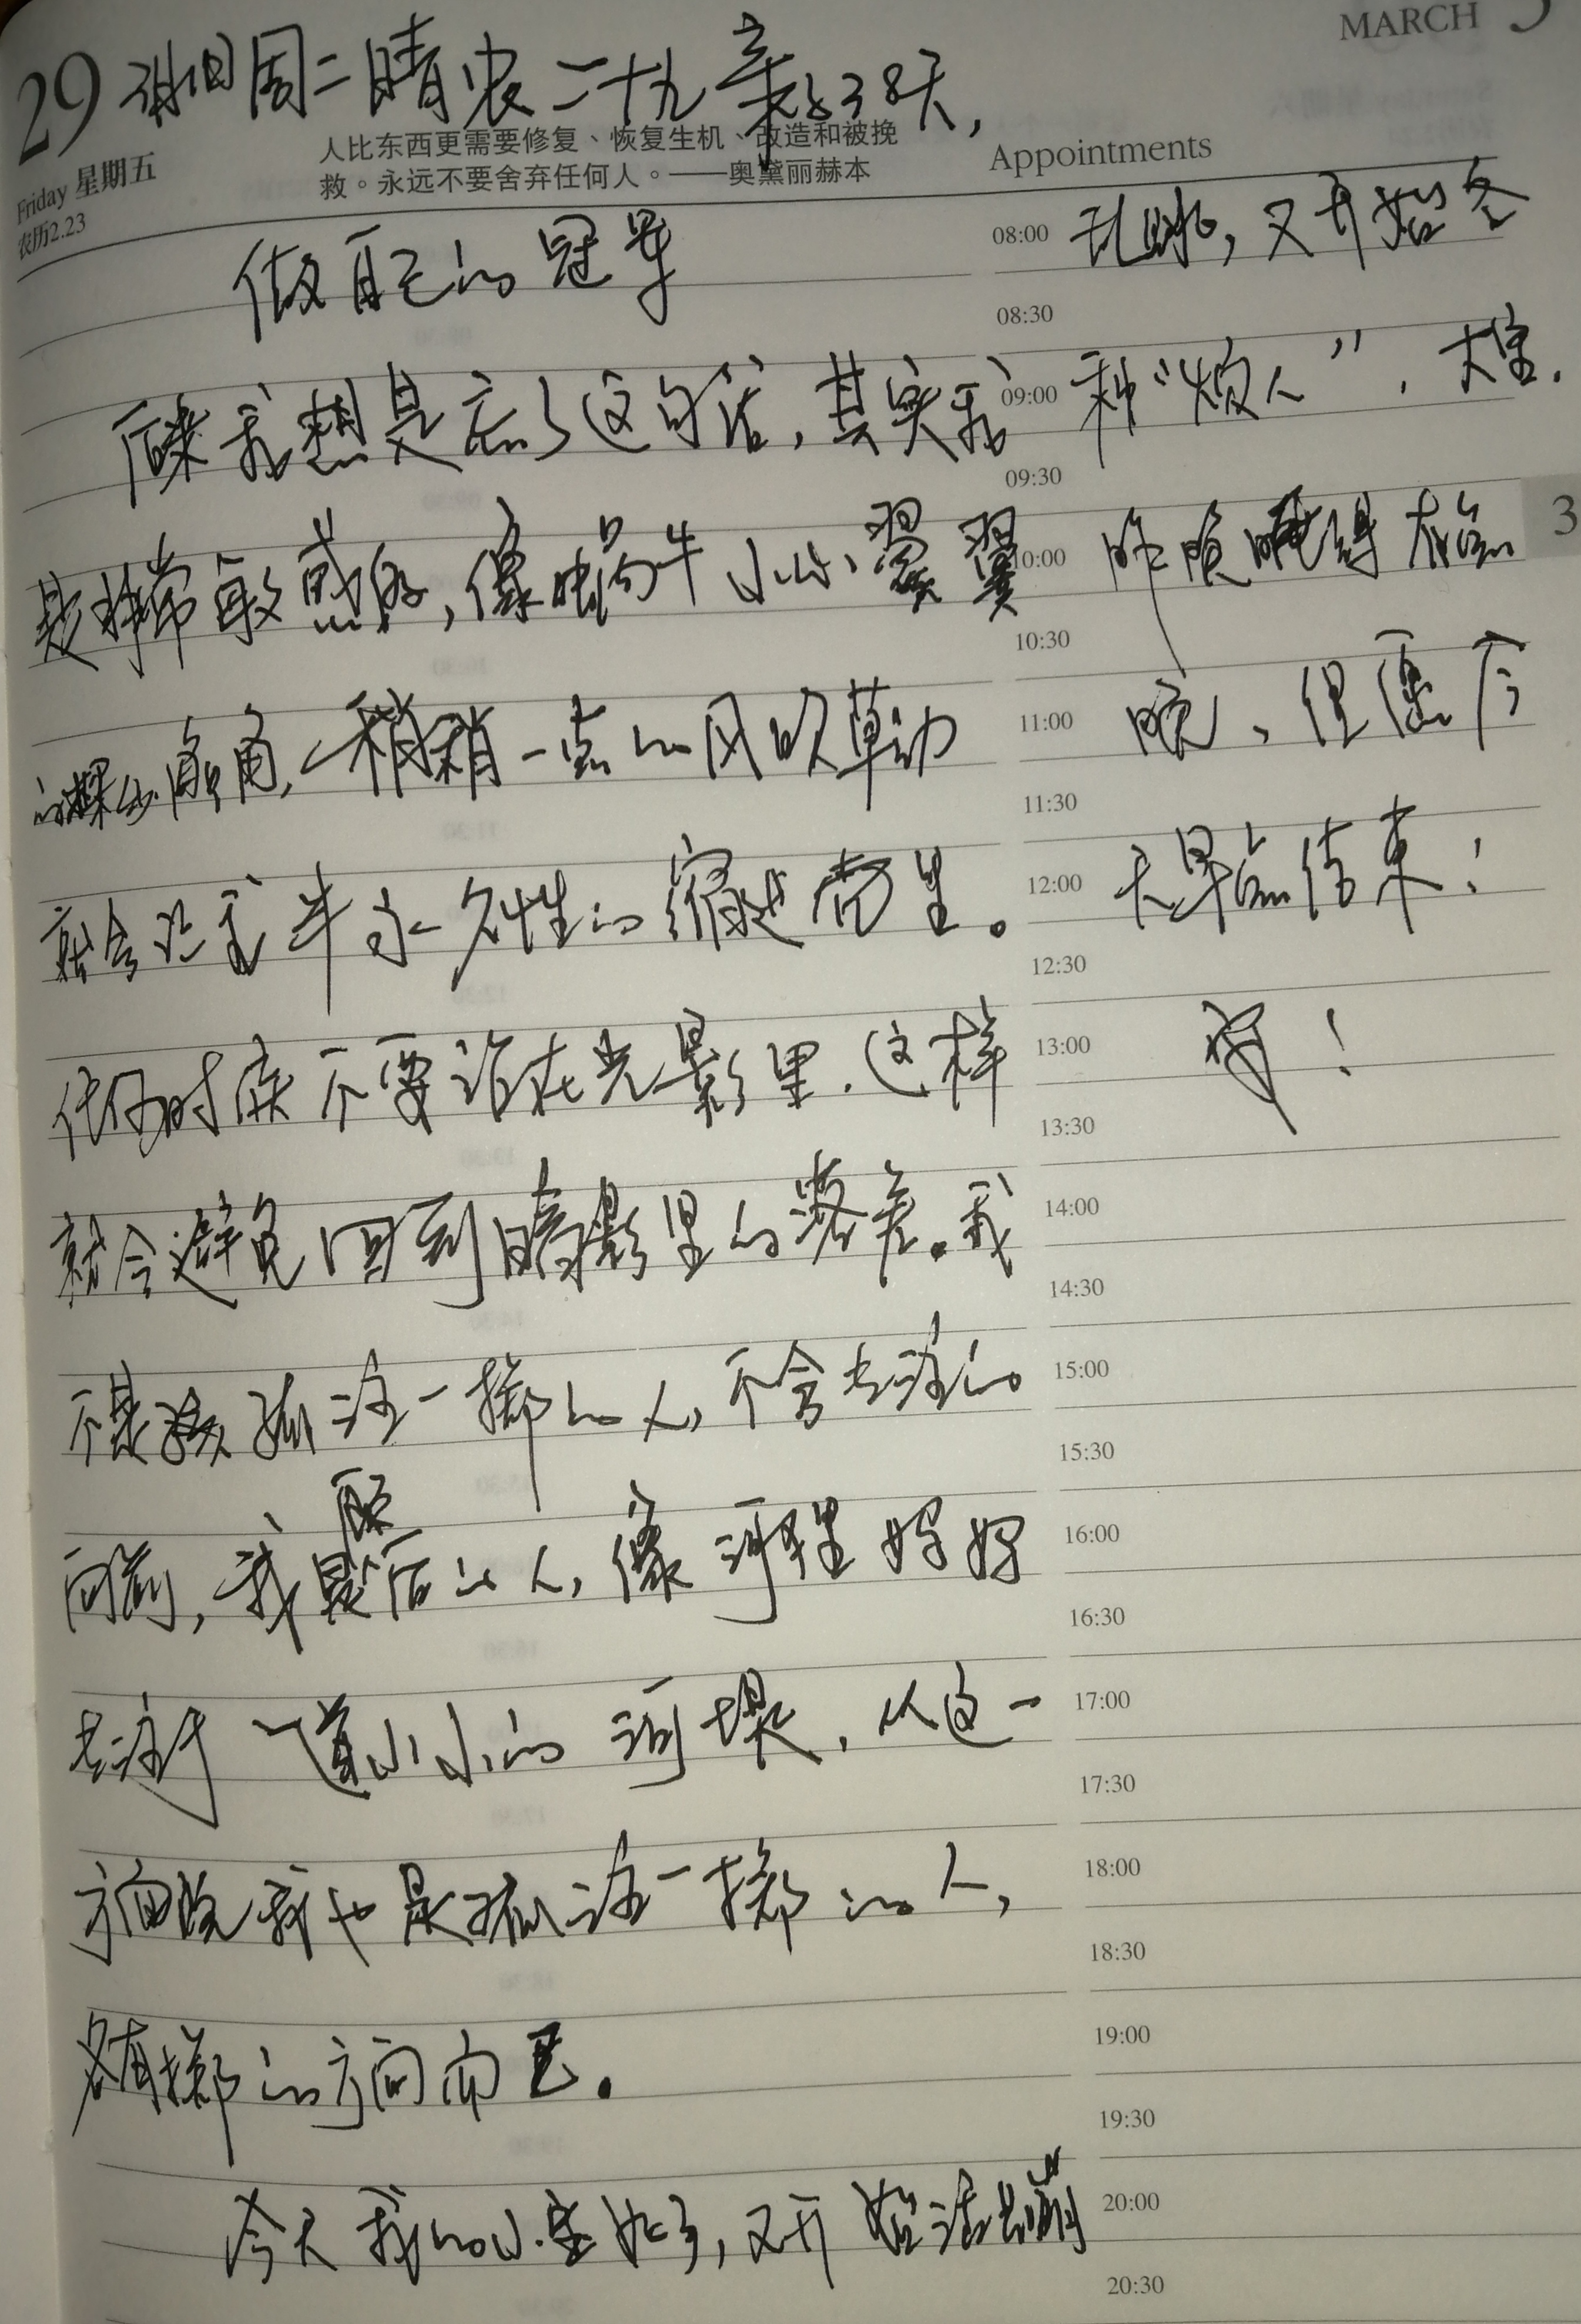 MARCH 3
29 周二晴农二十九 38天,
Friday 星期五
农历2.23
人比东西更需要修复、恢复生机、改造和被挽
救。永远不要舍弃任何人。——奥黛丽赫本
Appointments
做自己的冠军
后来我想是忘了这句话,其实我
是非常敏感的,像蜗牛小心翼翼
的探出触角,稍稍一点的风吹草动
就会让我半永久性的缩进壳里。
任何时候不要说在光影里.这样
就会避免回到暗影里的落差。我
不是孤注一掷的人,不会去
向前,我是后的人,像河里
一道小小的河堤,从这一
方面说我也是孤注一掷的人,
各有掷的方向而已。
今天我的小宝好了,又开始活蹦
08:00 乱跳,又开始各
08:30
09:00 种“烦人”,大宝.
09:30
10:00 昨晚睡得有点
10:30
11:00 晚、但愿今
11:30
12:00 天早点结束!
12:30
13:00 !
13:30
14:00
14:30
15:00
15:30
16:00
16:30
17:00
17:30
18:00
18:30
19:00
19:30
20:00
20:30
3